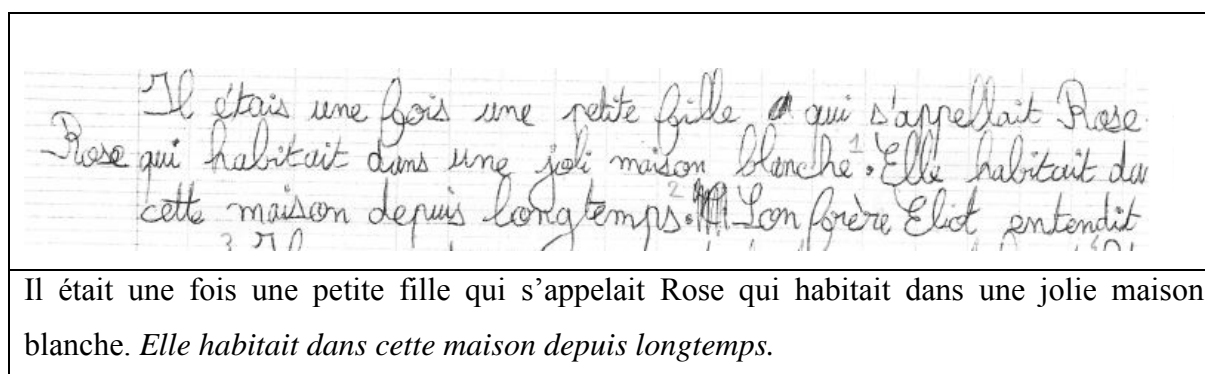 Il étais une fois une petite fille qui s'appellait Rose
Rose qui habitait dans une joli maison blanche¹. Elle habitait da
cette maison depuis longtemps².  Son frère Eliot entendit
3 Il
Il était une fois une petite fille qui s’appelait Rose qui habitait dans une jolie maison
blanche. Elle habitait dans cette maison depuis longtemps.